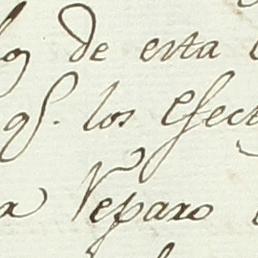 de esta
qᵉ. los Efect
a Reparo